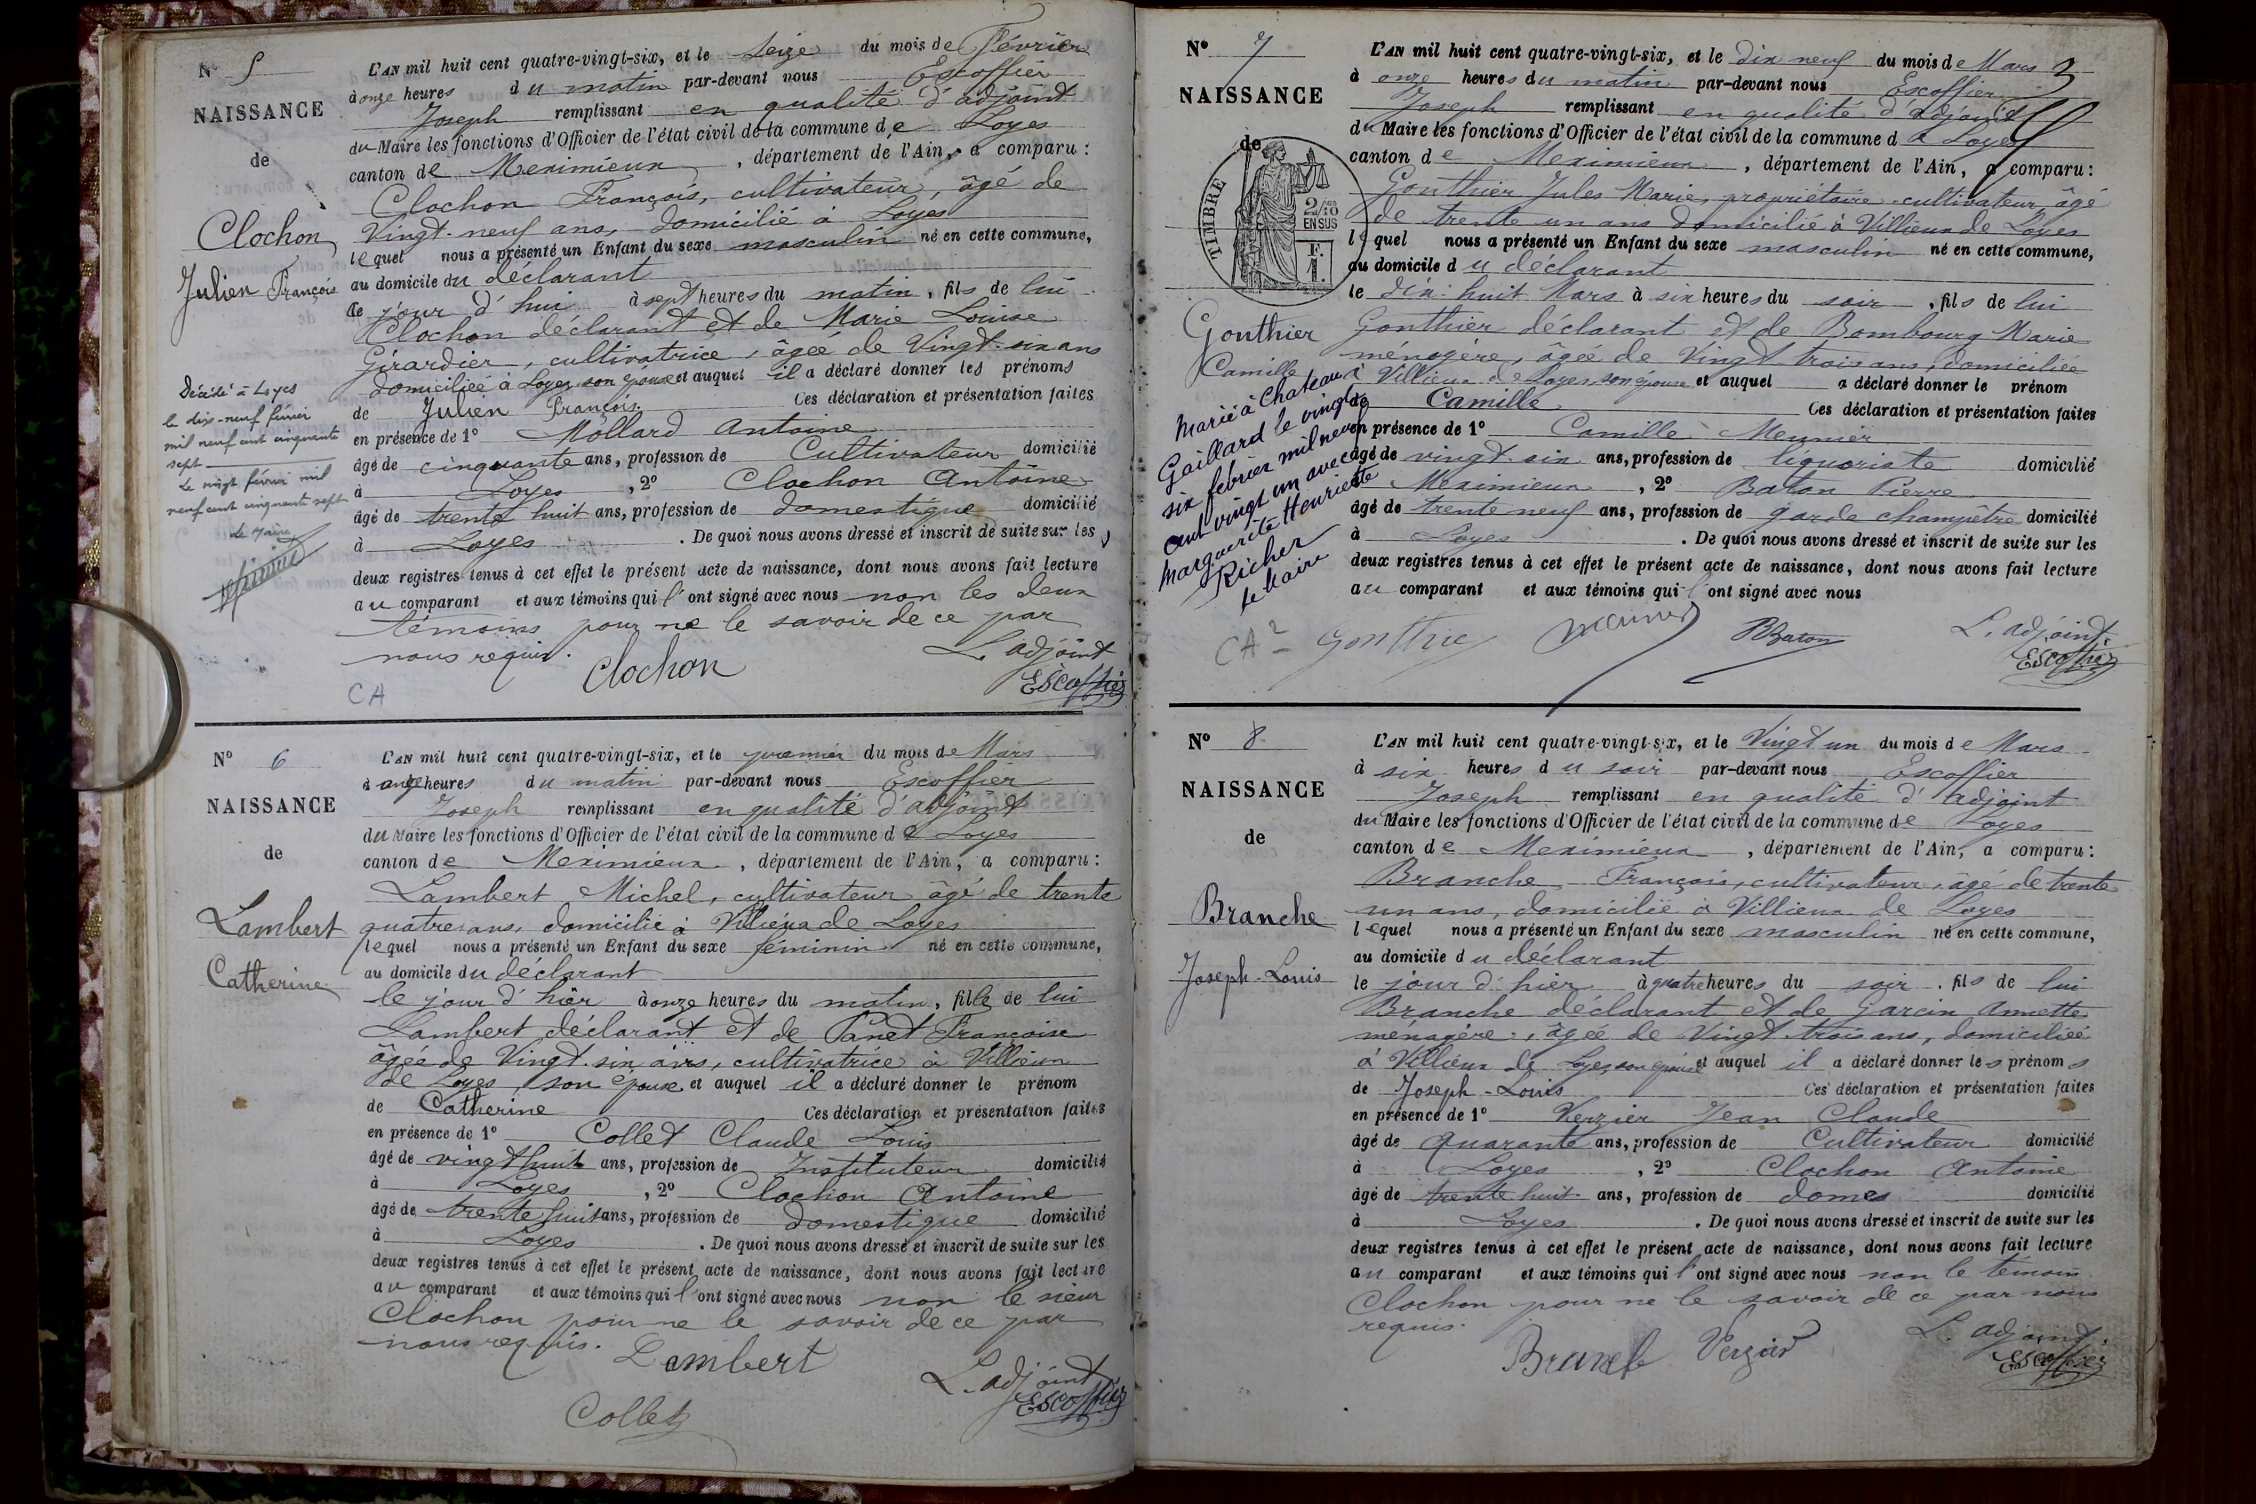 N° 5
NAISSANCE
de
Clochon
Julien François
Décédé à Loyes
le dix-neuf février
mil neuf cent cinquante
sept
Le vingt février mil
neuf cent cinquante sept
Le Maire
L'AN mil huit cent quatre-vingt-six, et le seize du mois de Février
à onze heures du matin par-devant nous Escoffier
Joseph remplissant en qualité d'adjoint
du Maire les fonctions d'Officier de l'état civil de la commune de Loyes
canton de Meximieux, département de l'Ain, a comparu :
Clochon François, cultivateur, âgé de
Vingt-neuf ans, domicilié à Loyes
lequel nous a présenté un Enfant du sexe masculin né en cette commune,
au domicile du déclarant
de jour d'hui à sept heures du matin, fils de lui
Clochon déclarant et de Marie Louise
Girardier, cultivatrice, âgée de Vingt-six ans
domiciliée à Loyes, son épouse et auquel il a déclaré donner les prénoms
de Julien François. Ces déclaration et présentation faites
en présence de 1° Mollard Antoine
âgé de cinquante ans, profession de Cultivateur domicilié
à Loyes, 2° Clochon Antoine
âgé de trente huit ans, profession de domestique domicilié
à Loyes. De quoi nous avons dressé et inscrit de suite sur les
deux registres tenus à cet effet le présent acte de naissance, dont nous avons fait lecture
au comparant et aux témoins qui l'ont signé avec nous non les deux
témoins pour ne le savoir de ce par
nous requis.
Clochon
L'adjoint
Escoffier
CA
N° 6
NAISSANCE
de
Lambert
Catherine
L'AN mil huit cent quatre-vingt-six, et le premier du mois de Mars
à onze heures du matin par-devant nous Escoffier
Joseph remplissant en qualité d'adjoint
du Maire les fonctions d'Officier de l'état civil de la commune de Loyes
canton de Meximieux, département de l'Ain, a comparu :
Lambert Michel, cultivateur âgé de trente
quatre ans, domicilié à Villieux de Loyes
lequel nous a présenté un Enfant du sexe féminin né en cette commune,
au domicile du déclarant
le jour d'hier à onze heures du matin, fille de lui
Lambert déclarant et de Panet Françoise
âgée de Vingt-six ans, cultivatrice à Villieux
de Loyes, son épouse et auquel il a déclaré donner le prénom
de Catherine Ces déclaration et présentation faites
en présence de 1° Collet Claude Louis
âgé de vingt huit ans, profession de Instituteur domicilié
à Loyes, 2° Clochon Antoine
âgé de trente huit ans, profession de domestique domicilié
à Loyes. De quoi nous avons dressé et inscrit de suite sur les
deux registres tenus à cet effet le présent acte de naissance, dont nous avons fait lecture
au comparant et aux témoins qui l'ont signé avec nous non le sieur
Clochon pour ne le savoir de ce par
nous requis.
Lambert
L'adjoint
Escoffier
Collet
N° 7
NAISSANCE
de
TIMBRE
2/10
EN SUS
F.
1
Gonthier
Camille
Marié à Chateau
Gaillard le vingt
six febrier mil neuf
cent vingt un avec
Marguerite Henriette
Richer
le Maire
L'AN mil huit cent quatre-vingt-six, et le dix neuf du mois de Mars
à onze heures du matin par-devant nous Escoffier
Joseph remplissant en qualité d'adjoint
du Maire les fonctions d'Officier de l'état civil de la commune de Loyes
canton de Meximieux, département de l'Ain, a comparu :
Gonthier Jules Marie, propriétaire-cultivateur, âgé
de trente un ans domicilié à Villieux de Loyes
lequel nous a présenté un Enfant du sexe masculin né en cette commune,
au domicile du déclarant
le dix-huit Mars à six heures du soir, fils de lui
Gonthier déclarant et de Bombourg Marie
ménagère, âgée de Vingt-trois ans, domiciliée
à Villieux de Loyes, son épouse et auquel a déclaré donner le prénom
de Camille Ces déclaration et présentation faites
en présence de 1° Camille Meunier
âgé de vingt-six ans, profession de liquoriste domicilié
à Meximieux, 2° Baton Pierre
âgé de trente neuf ans, profession de garde champêtre domicilié
à Loyes. De quoi nous avons dressé et inscrit de suite sur les
deux registres tenus à cet effet le présent acte de naissance, dont nous avons fait lecture
au comparant et aux témoins qui l'ont signé avec nous
CA 2
Gonthie
Meunier
PBaton
L'adjoint.
Escoffier
N° 8
NAISSANCE
de
Branche
Joseph-Louis
L'AN mil huit cent quatre-vingt-six, et le Vingt un du mois de Mars
à six heures du soir par-devant nous Escoffier
Joseph remplissant en qualité d'adjoint
du Maire les fonctions d'Officier de l'état civil de la commune de Loyes
canton de Meximieux, département de l'Ain, a comparu :
Branche François, cultivateur, âgé de trente
un ans, domicilié à Villieux de Loyes
lequel nous a présenté un Enfant du sexe masculin né en cette commune,
au domicile du déclarant
le jour d'hier à quatre heures du soir, fils de lui
Branche déclarant et de Garcin Annette
ménagère, âgée de Vingt-trois ans, domiciliée
à Villieux de Loyes, son épouse et auquel il a déclaré donner les prénoms
de Joseph-Louis Ces déclaration et présentation faites
en présence de 1° Verzier Jean Claude
âgé de quarante ans, profession de Cultivateur domicilié
à Loyes, 2° Clochon Antoine
âgé de trente huit ans, profession de domes domicilié
à Loyes. De quoi nous avons dressé et inscrit de suite sur les
deux registres tenus à cet effet le présent acte de naissance, dont nous avons fait lecture
au comparant et aux témoins qui l'ont signé avec nous non le témoin
Clochon pour ne le savoir de ce par nous
requis.
Branche
Verzier
L'adjoint.
Escoffier